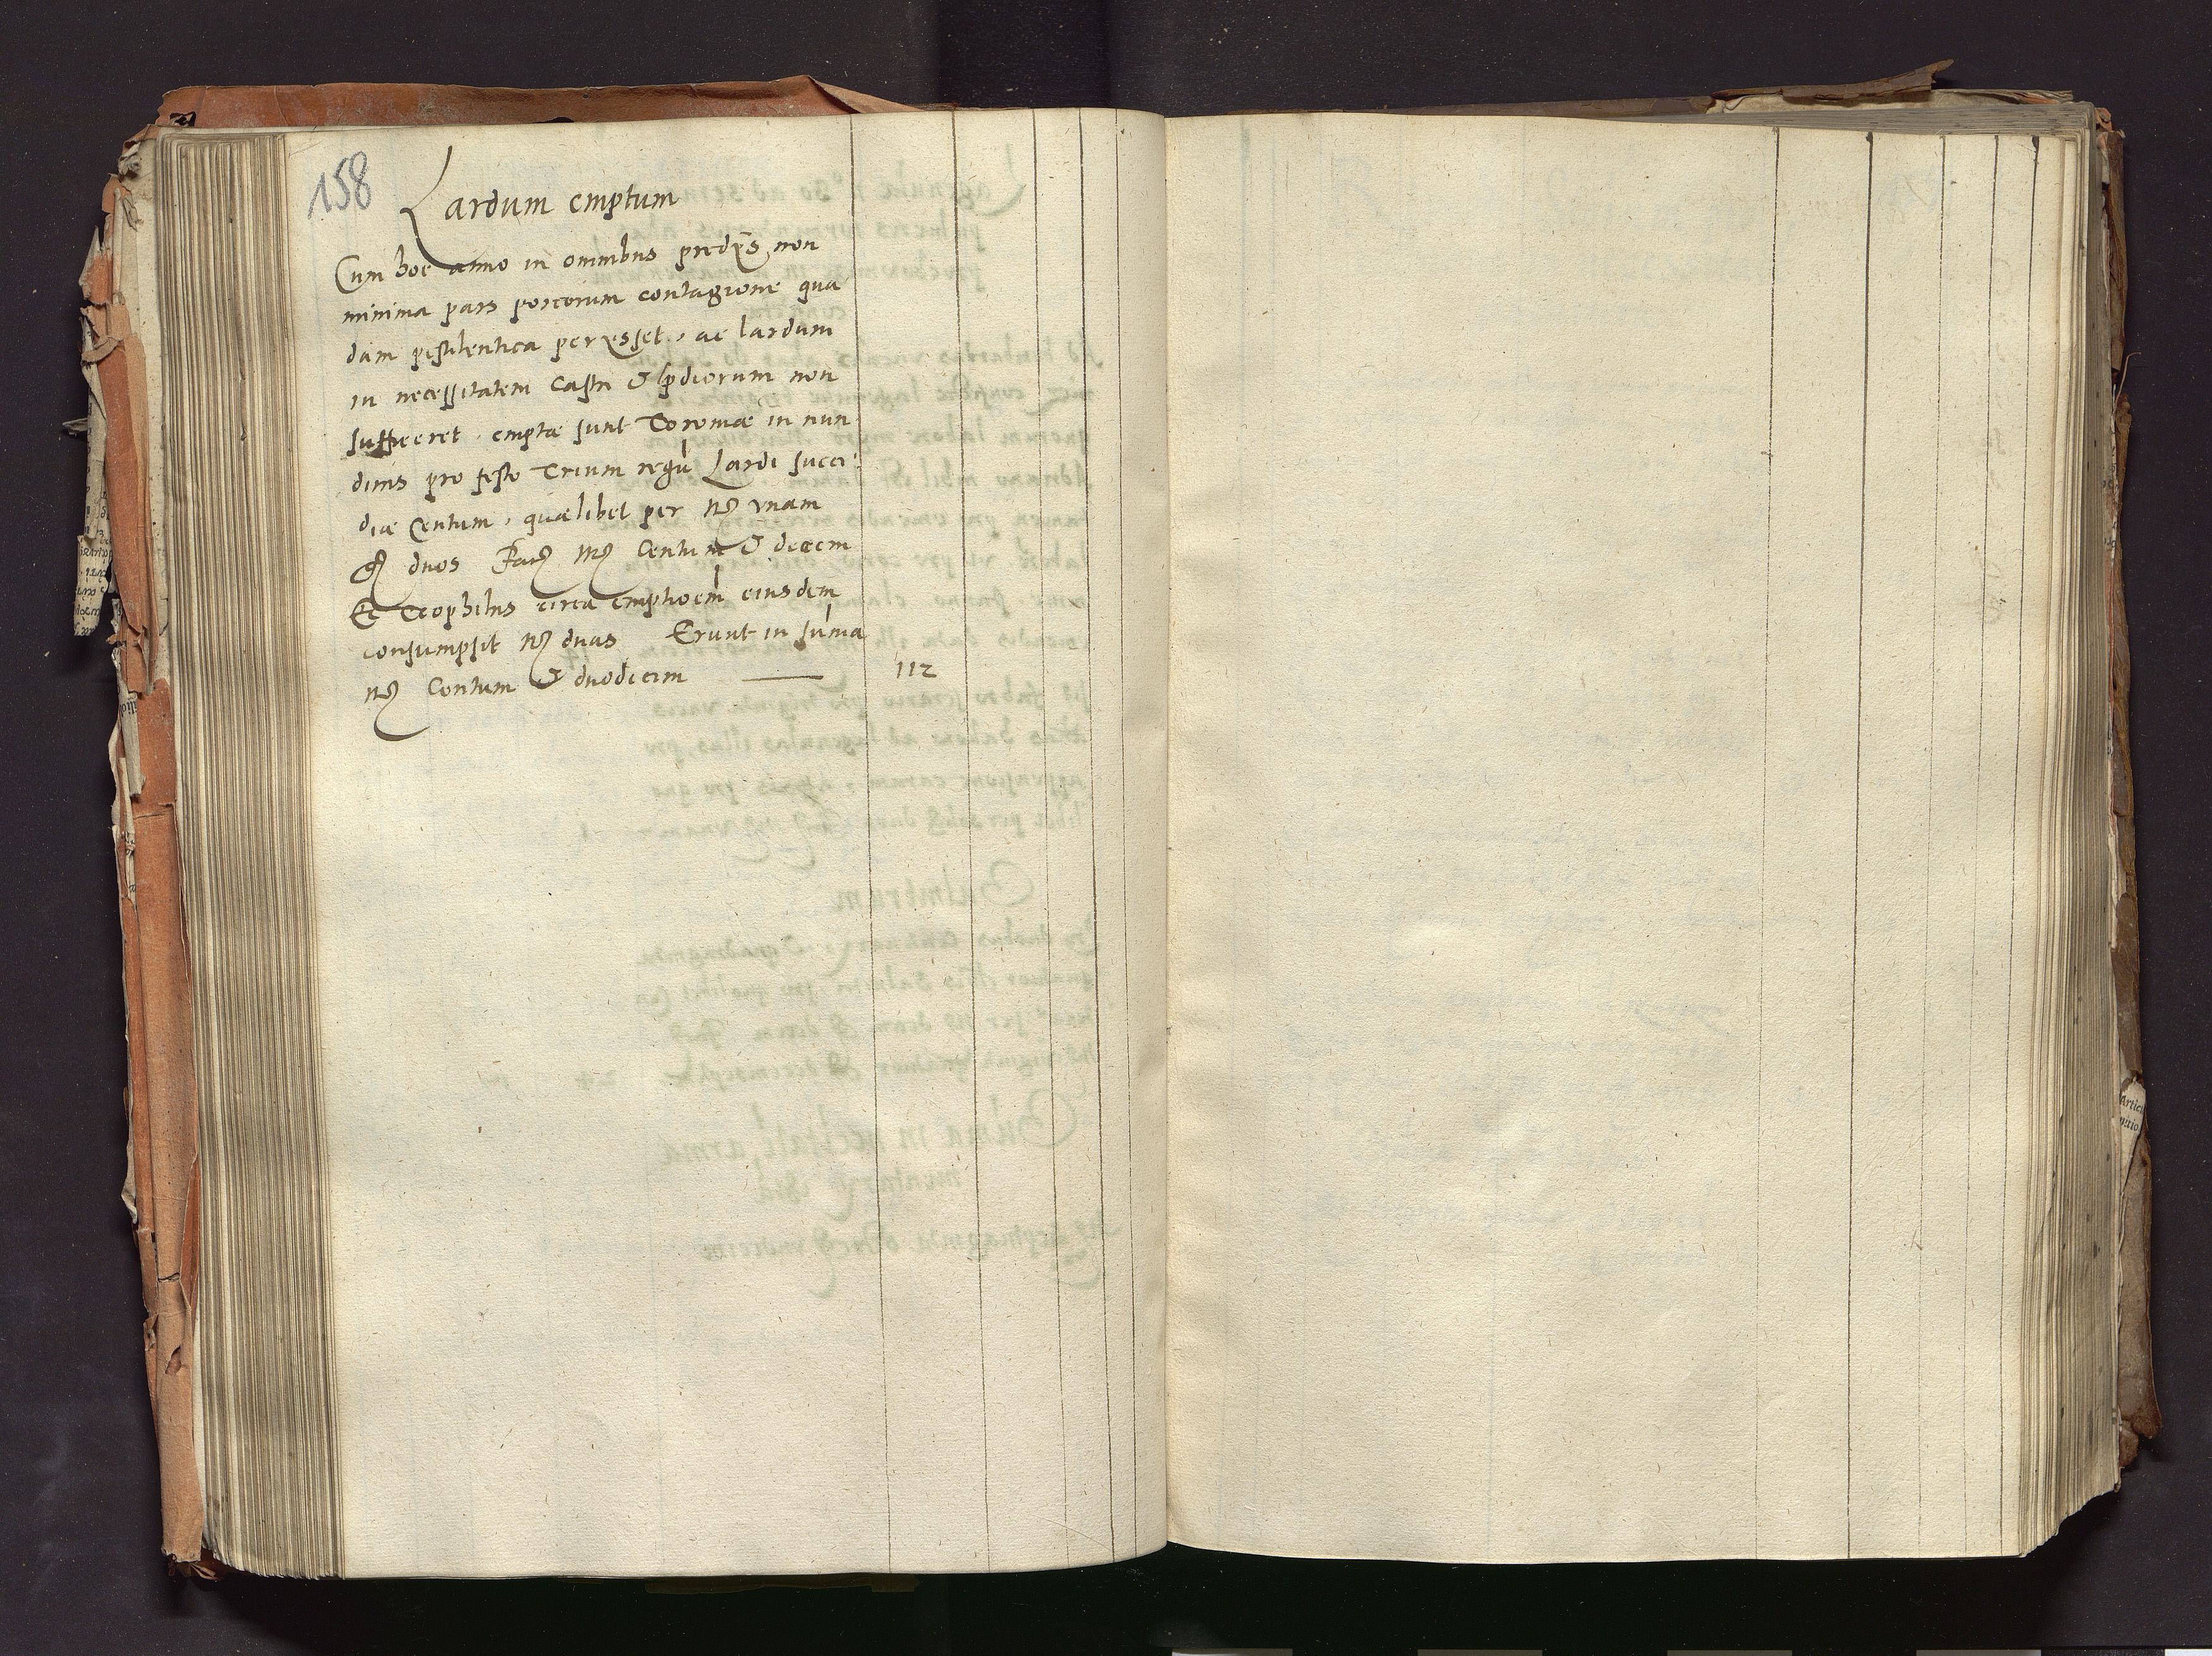 158
Lardum emptum
Cum hoc anno in omnibus prediis non
minima pars porcorum contagione qua
dam pestilentica periisset, ac lardum
in necessitatem Castri & prediorum non
sufficeret. emptæ sunt Toroniæ in nun
dinis pro festo Trium regū Lardi succi
diæ Centum, quælibet per mꝝ vnam
duos Faciunt mꝝ Centum & decem
Et Teophilus circa emptioem eiusdem
consumpsit mꝝ duas Erunt in sūma
mꝝ Centum & duodecim — 112